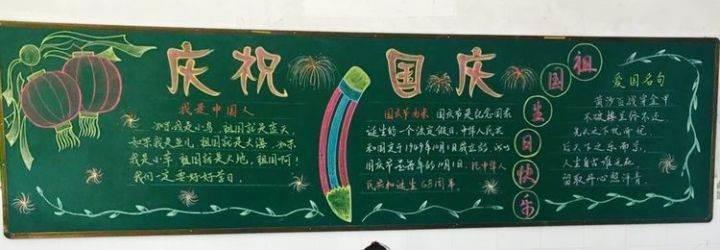 庆祝国庆
我是中国人
如果我是小鸟,祖国就是蓝天,
如果我是鱼儿,祖国就是大海,如果
我是小草,祖国就是大地,祖国啊!
我们一定要好好学习。
国庆节由来:国庆节是纪念国家
诞生的一个法定假日,中华人民共
和国定于1949年10月1日成立的,所以
国庆节是每年的10月1日,
民共和诞生68周年。
祖国生日快乐
爱国名句
黄沙百战穿金甲
不破楼兰终不还
先天下之忧而忧,
后天下之乐而乐,
人生自古谁无死
留取丹心照汗青。